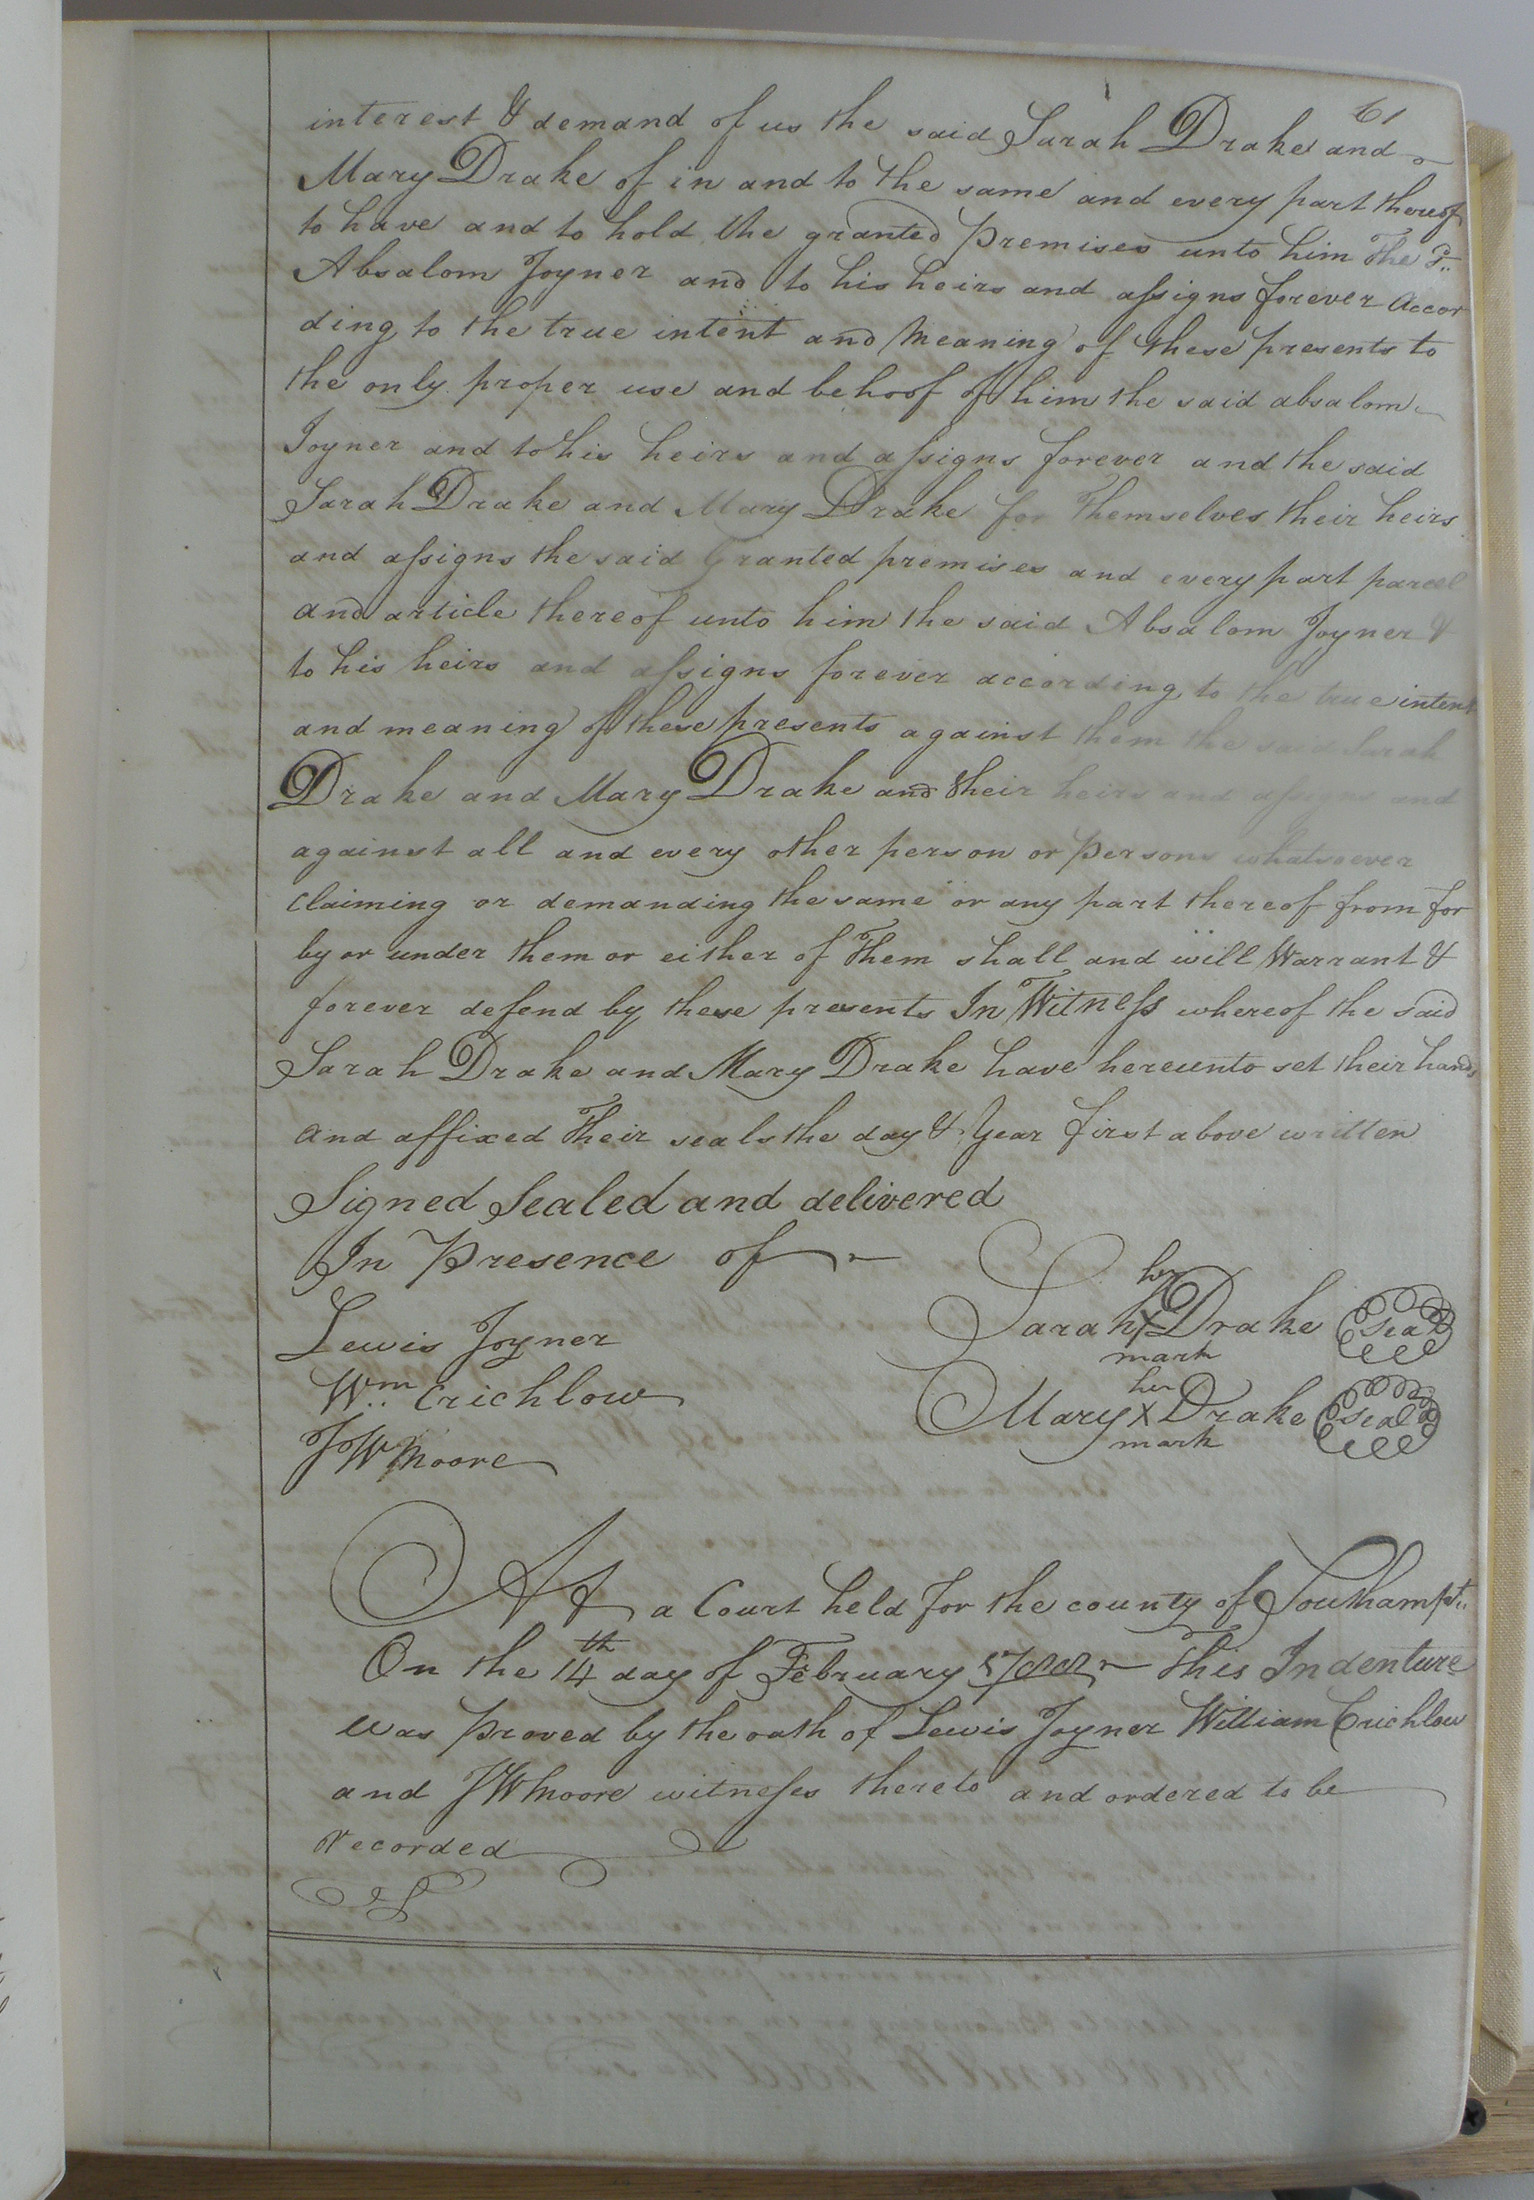 61
interest & demand of us the said Sarah Drake and
Mary Drake of in and to the same and every part thereof
to have and to hold the granted premises unto him The sd..
Absalom Joyner and to his heirs and assigns forever accor
ding to the true intent and meaning of these presents to
the only proper use and behoof of him the said absalom
Joyner and to his heirs and assigns forever and the said
Sarah Drake and Mary Drake for Themselves their heirs
and assigns the said Granted premises and every part parcel
and article thereof unto him the said Absalom Joyner &
to his heirs and assigns forever according to the true intent
and meaning of these presents against them the said Sarah
Drake and Mary Drake and their heirs and assigns and
against all and every other person or persons whatsoever
claiming or demanding the same or any part thereof from for
by or under them or either of Them shall and will Warrant &
forever defend by these presents In Witness whereof the said
Sarah Drake and Mary Drake have hereunto set their hands
and affixed Their seals the day & Year first above written
Signed Sealed and delivered
In Presence of
Lewis Joyner
Wm. Crichlow
JWMoore
her
Sarah X Drake Seal
mark
her
Mary X Drake Seal
mark
At a Court held for the county of Southampt..
On the 14th day of February This Indenture
was proved by the oath of Lewis Joyner William Crichlow
and JWMoore witnesses thereto and ordered to be
recorded